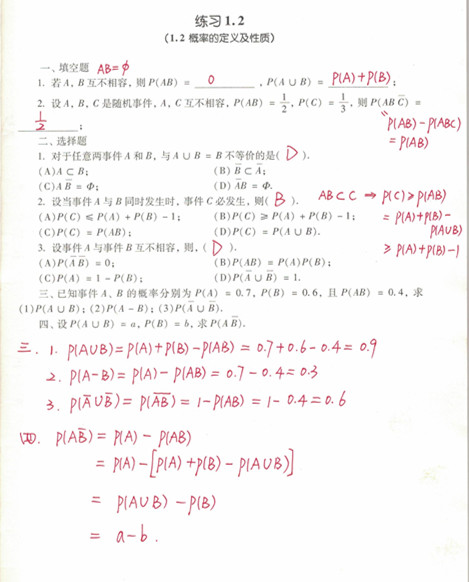 练习1.2
(1.2 概率的定义及性质)
一、填空题 AB=φ
1. 若A,B互不相容,则P(AB) = 0 ,P(A∪B) = P(A)+P(B);
2. 设A,B,C是随机事件,A,C互不相容,P(AB) = 1/2,P(C) = 1/3,则P(AB C̄) =
1/2 ; "P(AB)-P(ABC)
=P(AB)
二、选择题
1. 对于任意两事件A和B,与A∪B = B不等价的是( D ).
(A)A⊂B; (B)B̄⊂Ā;
(C)A B̄ = Φ; (D)Ā B = Φ.
2. 设当事件A与B同时发生时,事件C必发生,则( B ). AB⊂C → P(C)≥P(AB)
(A)P(C) ≤ P(A) + P(B) - 1; (B)P(C) ≥ P(A) + P(B) - 1; =P(A)+P(B)-
(C)P(C) = P(AB); (D)P(C) = P(A∪B). P(A∪B)
3. 设事件A与事件B互不相容,则,( D ). ≥P(A)+P(B)-1
(A)P(Ā B̄) = 0; (B)P(AB) = P(A)P(B);
(C)P(A) = 1 - P(B); (D)P(Ā∪B̄) = 1.
三、已知事件A、B的概率分别为P(A) = 0.7,P(B) = 0.6,且P(AB) = 0.4,求
(1)P(A∪B);(2)P(A - B);(3)P(Ā∪B̄).
四、设P(A∪B) = a,P(B) = b,求P(A B̄).
三. 1. P(A∪B)=P(A)+P(B)-P(AB)=0.7+0.6-0.4=0.9
2. P(A-B)=P(A)-P(AB)=0.7-0.4=0.3
3. P(Ā∪B̄)=P(A̅B̅)=1-P(AB)=1-0.4=0.6
四. P(AB̄)=P(A)-P(AB)
=P(A)-[P(A)+P(B)-P(A∪B)]
= P(A∪B)-P(B)
= a-b.